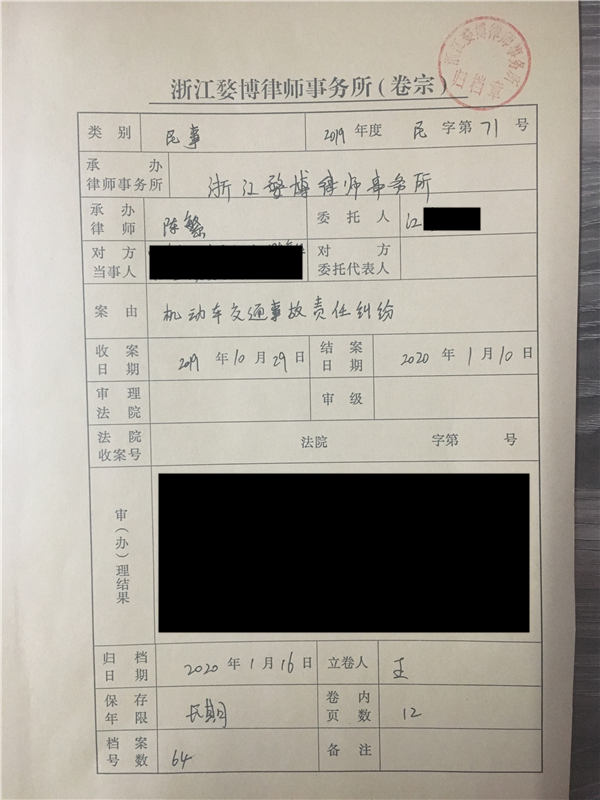 浙江婺博律师事务所
归档章
浙江婺博律师事务所（卷宗）
类别 民事 2019 年度 民 字第 71 号
承办
律师事务所 浙江婺博律师事务所
承办
律师 陈 委托人 江
对方
当事人
对方
委托代表人
案由 机动车交通事故责任纠纷
收案
日期 2019 年 10 月 29 日
结案
日期 2020 年 1 月 10 日
审理
法院
审级
法院
收案号 法院 字第 号
审（办）理结果
归档
日期 2020 年 1 月 16 日 立卷人 王
保存
年限 长期
卷内
页数 12
档案
号数 64 备注